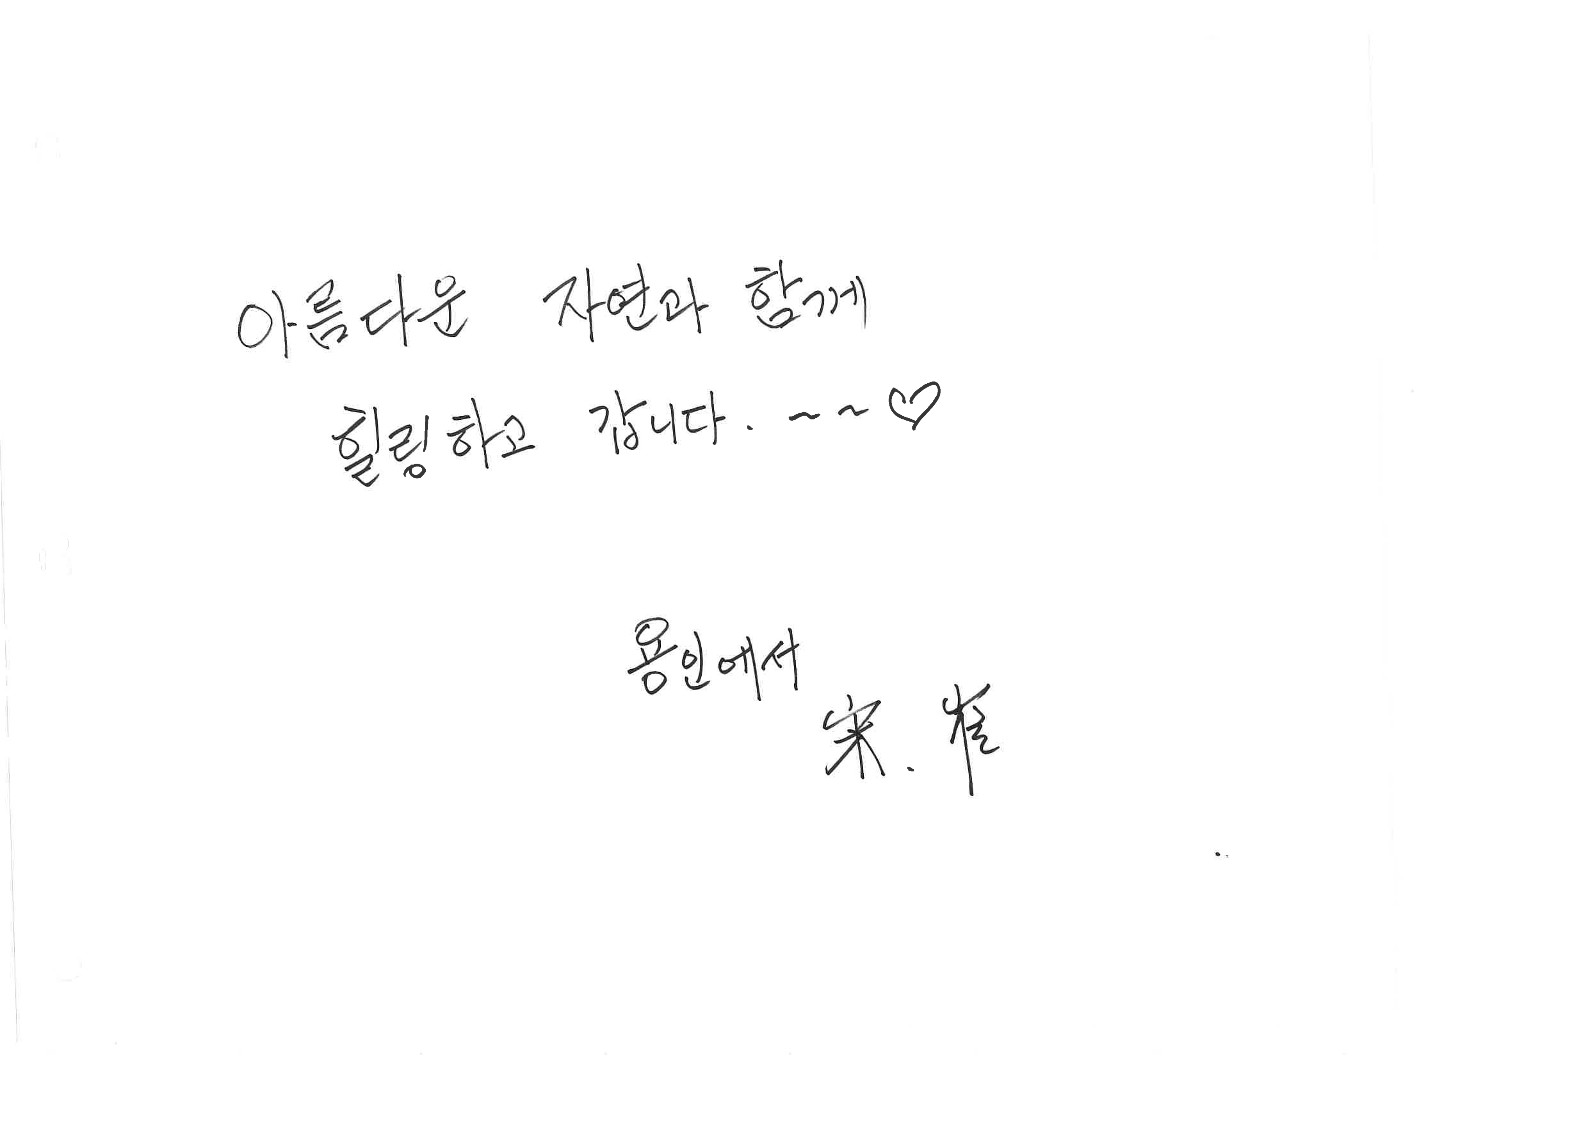 아름다운 자연과 함께
힐링하고 갑니다. ~ ~ ♡
용인에서
宋. 崔